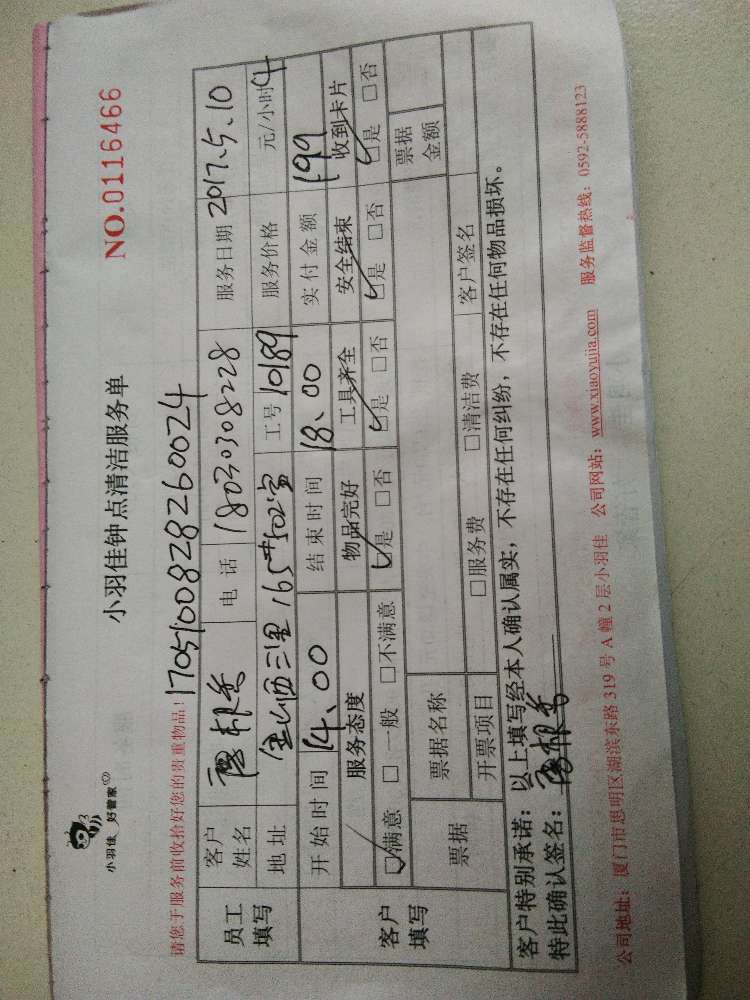 小羽佳 好管家
小羽佳钟点清洁服务单
NO.0116466
请您于服务前收拾好您的贵重物品!
170510082826 0024
员工填写
客户姓名
电 话 18030308228
服务日期 2017.5.10
地 址 金山西三里165#502室
工号 10189
服务价格 元/小时 4
客户填写
开始时间 14.00
结束时间 18.00
实付金额 199
服务态度 物品完好 工具齐全 安全结束 收到卡片
☑满意 □一般 □不满意 ☑是 □否 ☑是 □否 ☑是 □否 ☑是 □否
票据 票据名称 票据金额
开票项目 □服务费 □清洁费 客户签名
客户特别承诺:以上填写经本人确认属实,不存在任何纠纷,不存在任何物品损坏。
特此确认签名:
公司地址:厦门市思明区湖滨东路319号A幢2层小羽佳 公司网站:www.xiaoyujia.com 服务监督热线:0592-5888123